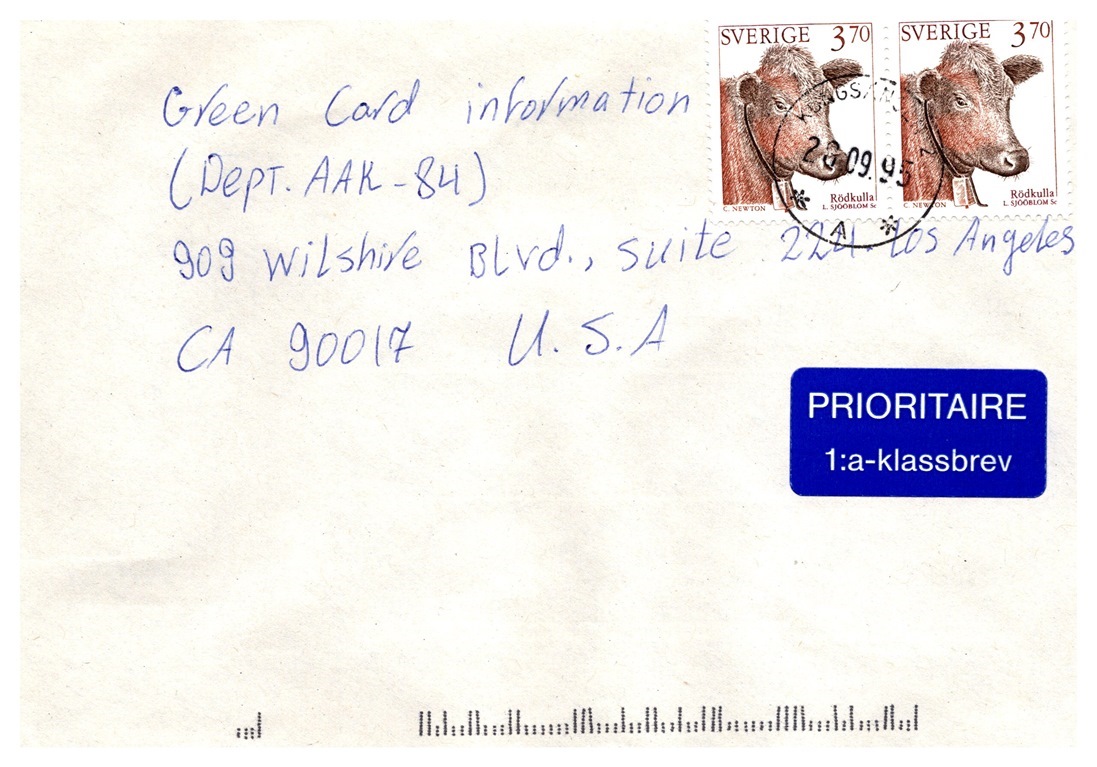 SVERIGE 3 70
SVERIGE 3 70
Rödkulla
C. NEWTON L. SJÖÖBLOM Sc
Rödkulla
C. NEWTON L. SJÖÖBLOM Sc
09.95
A
Green Card information
(Dept. AAK-84)
909 Wilshire Blvd., suite 224. Los Angeles
CA 90017 U.S.A
PRIORITAIRE
1:a-klassbrev